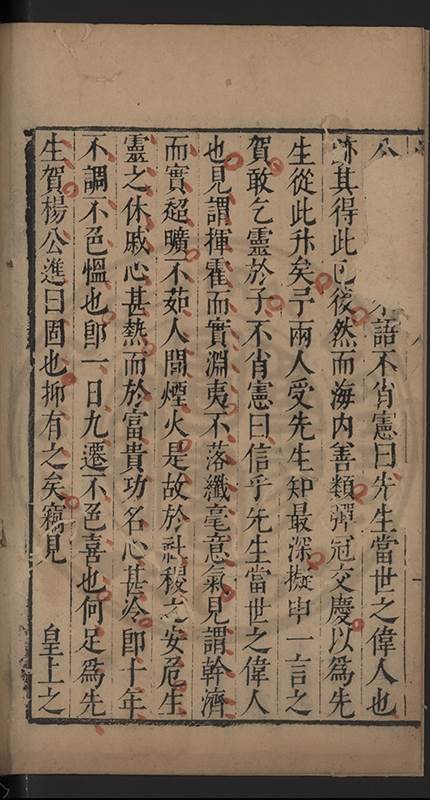 公語不肖憲曰先生當世之偉人也
其得此已後然而海内善類彈冠交慶以為先
生從此升矣予兩人受先生知最深擬申一言之
賀敢乞靈於子不肖憲曰信乎先生當世之偉人
也見謂揮霍而實淵夷不落纖毫意氣見謂幹濟
而實超曠不茹人間煙火是故於社稷之安危生
靈之休戚心甚熱而於富貴功名心甚冷即十年
不調不色慍也即一日九遷不色喜也何足為先
生賀楊公進曰固也抑有之矣竊見皇上之